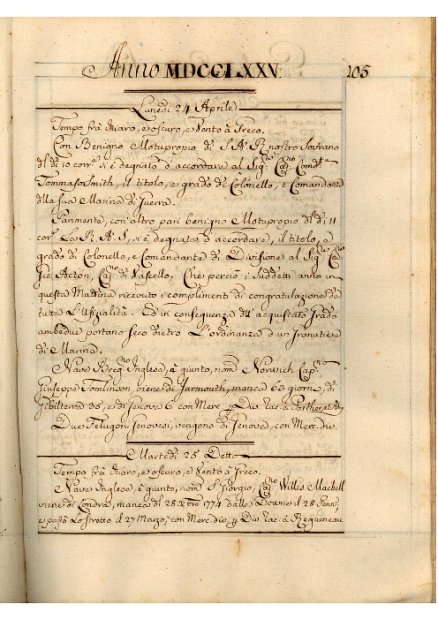 Anno MDCCLXXV. 205
Lunedì 24 Aprile
Tempo frà chiaro, e oscuro, e Vento à Greco.
Con Benigno Motuproprio di S. A. R. nostro Sovrano
de' dì 10 corr.e si è degnato d'accordare al Sig.e Cav.e Cond.e
Tommaso Smith, il titolo, e grado di Colonello, e Comandante
della sua Marina di Guerra.
Parimente, con altro pari benigno Motuproprio de' dì 11
cor.e La R. A. S, si è degnata d'accordare, il titolo, e
grado di Colonello, e Comandante di Divisione al Sig.e Cav.e
Gio Acton, Cap. di Vascello. Che perciò i Suddetti anno in
questa Mattina ricevuto i complimenti di congratulazione da
tutta L'Ufizialità. Ed in conseguenza dell'acquistato Grado
ambedue portano seco dietro L'ordinanza d'un Gronatiere
di Marina.
Nave Inglesa, è giunto, nom.e Norwich Cap.o
Giuseppe Tomlinson, viene da Jarmouth, manca 63 giorni, di
Gibilterra 26, e di Genova 6 con Merc. Div. rac. à
Due Genovesi, vengono di Genova, con Merc. div.
Martedì 25 Detto
Tempo frà chiaro, e oscuro, e Vento à Greco.
Nave Inglesa, è giunto, nom.e S. Giorgio, Cap.o Willis Machell
viene di Londra, manca dal 28 1774 dalle il 28 Genn.
e passò Lo stretto il 27 Marzo, con Merc. div. e Div. rac. à